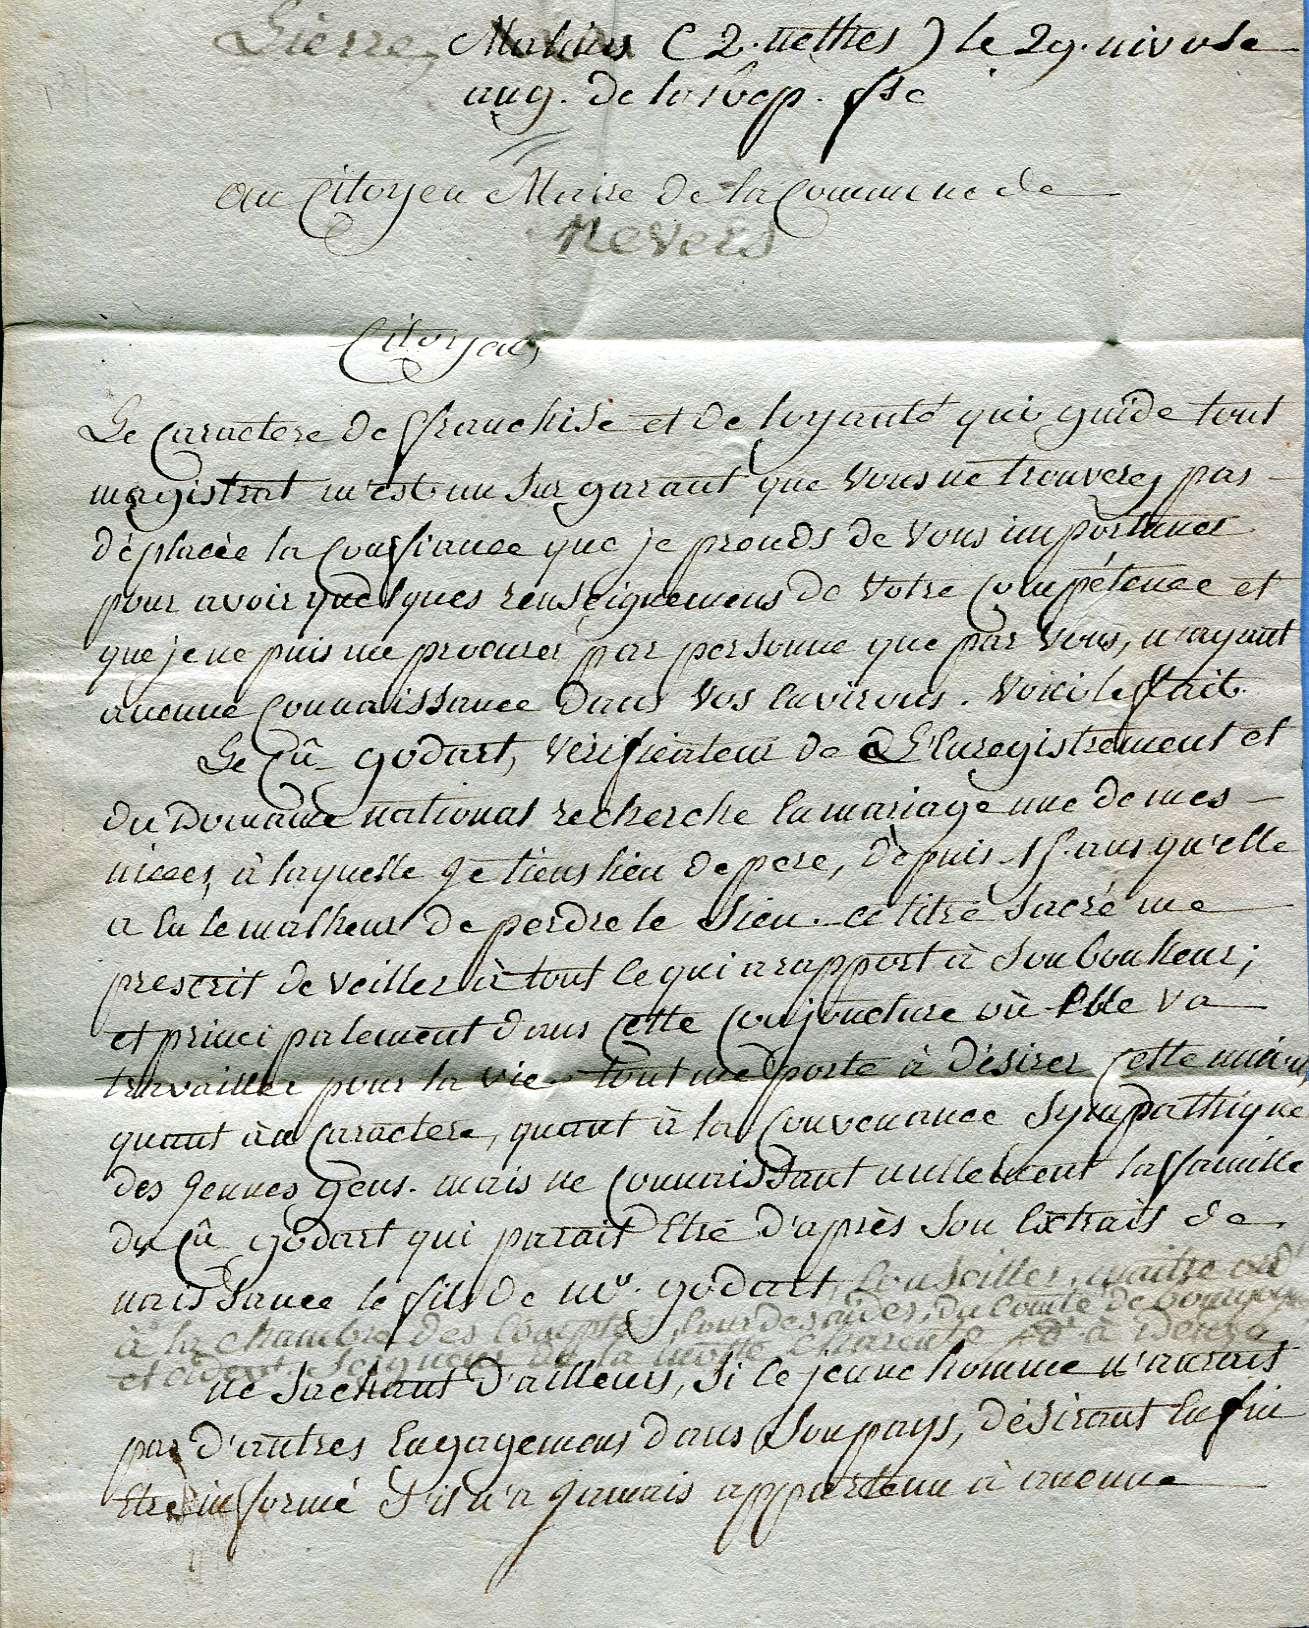 Lierre, Malines (2. nethes) le 29. nivose
an 9. de la Rép. fse
au Citoyen Maire de la Commune de
Nevers
Citoyen,
Le caractere de franchise et de loyauté qui guide tout
magistrat m'est un sur garant que vous ne trouverez pas
déplacée la confiance que je prends de vous importuner
pour avoir quelques renseignemens de votre compétence et
que je ne puis me procurer par personne que par vous, n'ayant
aucune connaissance dans vos environs. Voici le fait.
Le Cn. godart, vérificateur de L'Enregistrement et
du Domaine national recherche en mariage une de mes
nieces, à laquelle je tiens lieu de pere, depuis 15 ans qu'elle
a eu le malheur de perdre le sien. ce titre sacré me
prescrit de veiller à tout ce qui a rapport à son bonheur;
et principalement dans cette conjoncture où elle va
travailler pour la vie. tout me porte à désirer cette union,
quant au caractere, quant à la convenance sympathique
des jeunes gens. mais ne connaissant nullement la famille
du Cn godart qui parait être d'après son extrait de
naissance le fils de mr. godart, Conseiller, maitre ord
à la chambre des Comptes, Cour des aides, du Comté de bourgogne
et cidevt. Seigneur de la motte
ne sachant d'ailleurs, si ce jeune homme n'aurait
pas d'autres engagemens dans son pays, désirant enfin
être informé s'il n'a jamais appartenu à aucune